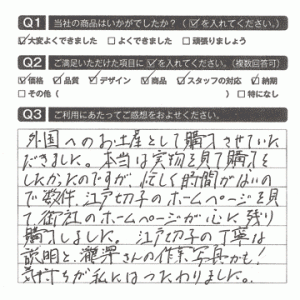 Q1 当社の商品はいかがでしたか?(☑を入れてください。)
☑大変よくできました □よくできました □頑張りましょう
Q2 ご満足いただけた項目に☑を入れてください。(複数回答可)
☑価格 ☑品質 ☑デザイン ☑商品 ☑スタッフの対応 ☑納期
□その他( ) □特になし
Q3 ご利用にあたってご感想をおよせください。
外国へのお土産として購入させていた
だきました。本当は実物を見て購入を
したかったのですが、忙しく時間がないの
で数件、江戸切子のホームページを見
て、御社のホームページが心に残り
購入しました。江戸切子の丁寧な
説明と、瀧澤さんの作業写真からも!
気持ちが私にはつたわりました。